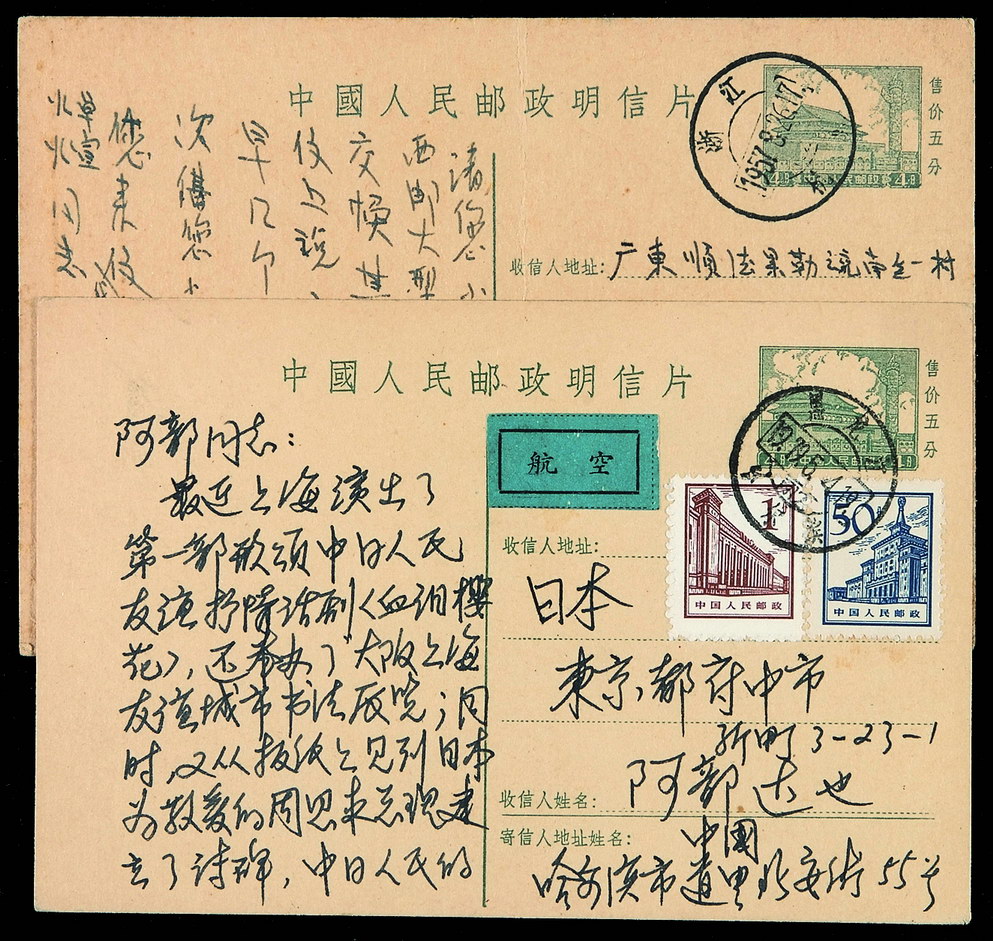 中國人民邮政明信片
售价五分
浙江
1957.8.26.17
中国人民邮政
诸您
西邮大型
交换其
仅上说
早几个
次借您
您来
同志
收信人地址: 广東順 勒流南 村
中國人民邮政明信片
售价五分
航空
1
中国人民邮政
50
中国人民邮政
阿部同志:
最近上海演出了
第一部歌颂中日人民
友谊抒情话剧《血泪樱
花》,还举办了大阪上海
友谊城市书法展览;同
时,又从报纸上见到日本
为敬爱的周恩来总理建
立了诗碑,中日人民的
收信人地址:
日本
東京都府中市
新町3-23-1
收信人姓名: 阿部达也
寄信人地址姓名: 中國
哈尔滨市道里北安街55号